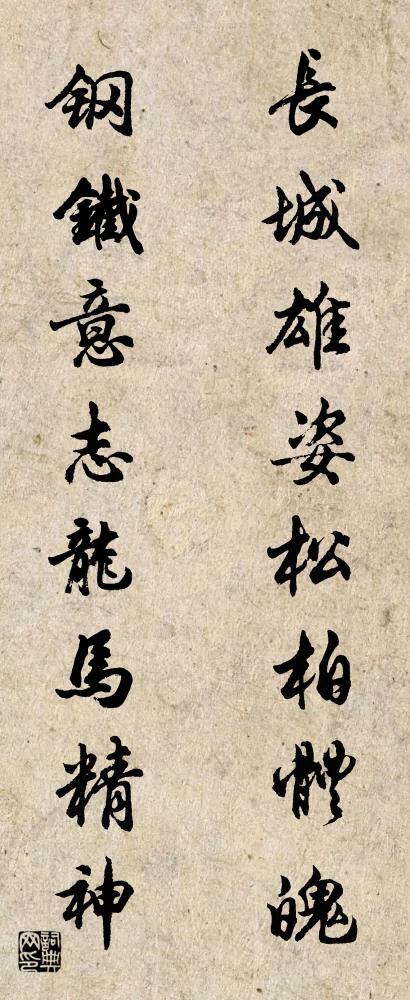 長城雄姿松柏體魄
鋼鐵意志龍馬精神
詞典网印